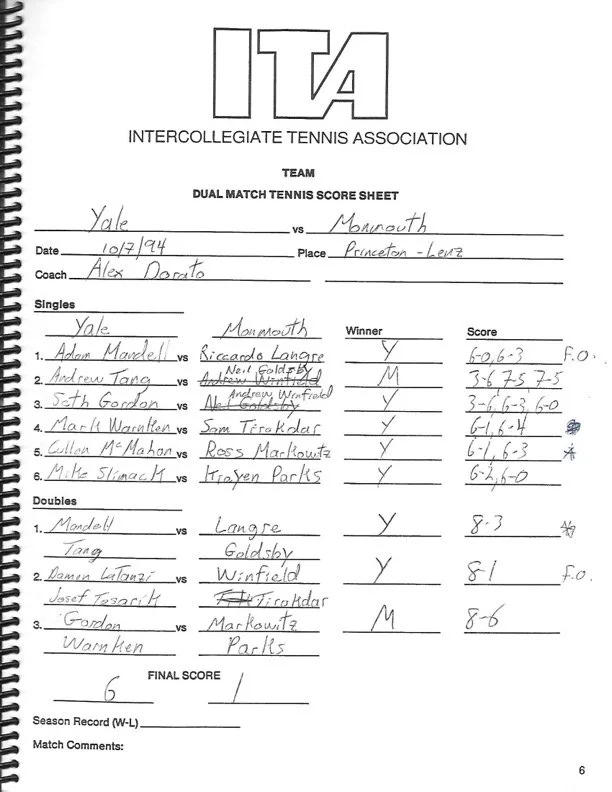 ITA
INTERCOLLEGIATE TENNIS ASSOCIATION
TEAM
DUAL MATCH TENNIS SCORE SHEET
Yale vs Monmouth
Date 10/7/94 Place Princeton - Lenz
Coach Alex Dorato
Singles
Yale Monmouth Winner Score
1. Adam Mandell vs Riccardo Langre Y 6-0, 6-3 F.O.
Neil Goldsby
2. Andrew Tang vs Andrew Winfield M 3-6 7-5 7-5
Andrew Winfield
3. Seth Gordon vs Neil Goldsby Y 3-6, 6-3, 6-0
4. Mark Warnken vs Sam Tirakdar Y 6-1, 6-4
5. Cullen McMahon vs Ross Markowitz Y 6-1, 6-3 *
6. Mike Slimack vs Krayen Parks Y 6-2, 6-0
Doubles
1. Mandell vs Langre Y 8-3 *
Tang Goldsby
2. Damen LaTanzi vs Winfield Y 8-1 F.O.
Josef Tesarik Tirakdar
3. Gordon vs Markowitz M 8-6
Warnken Parks
FINAL SCORE
6 1
Season Record (W-L)
Match Comments:
6